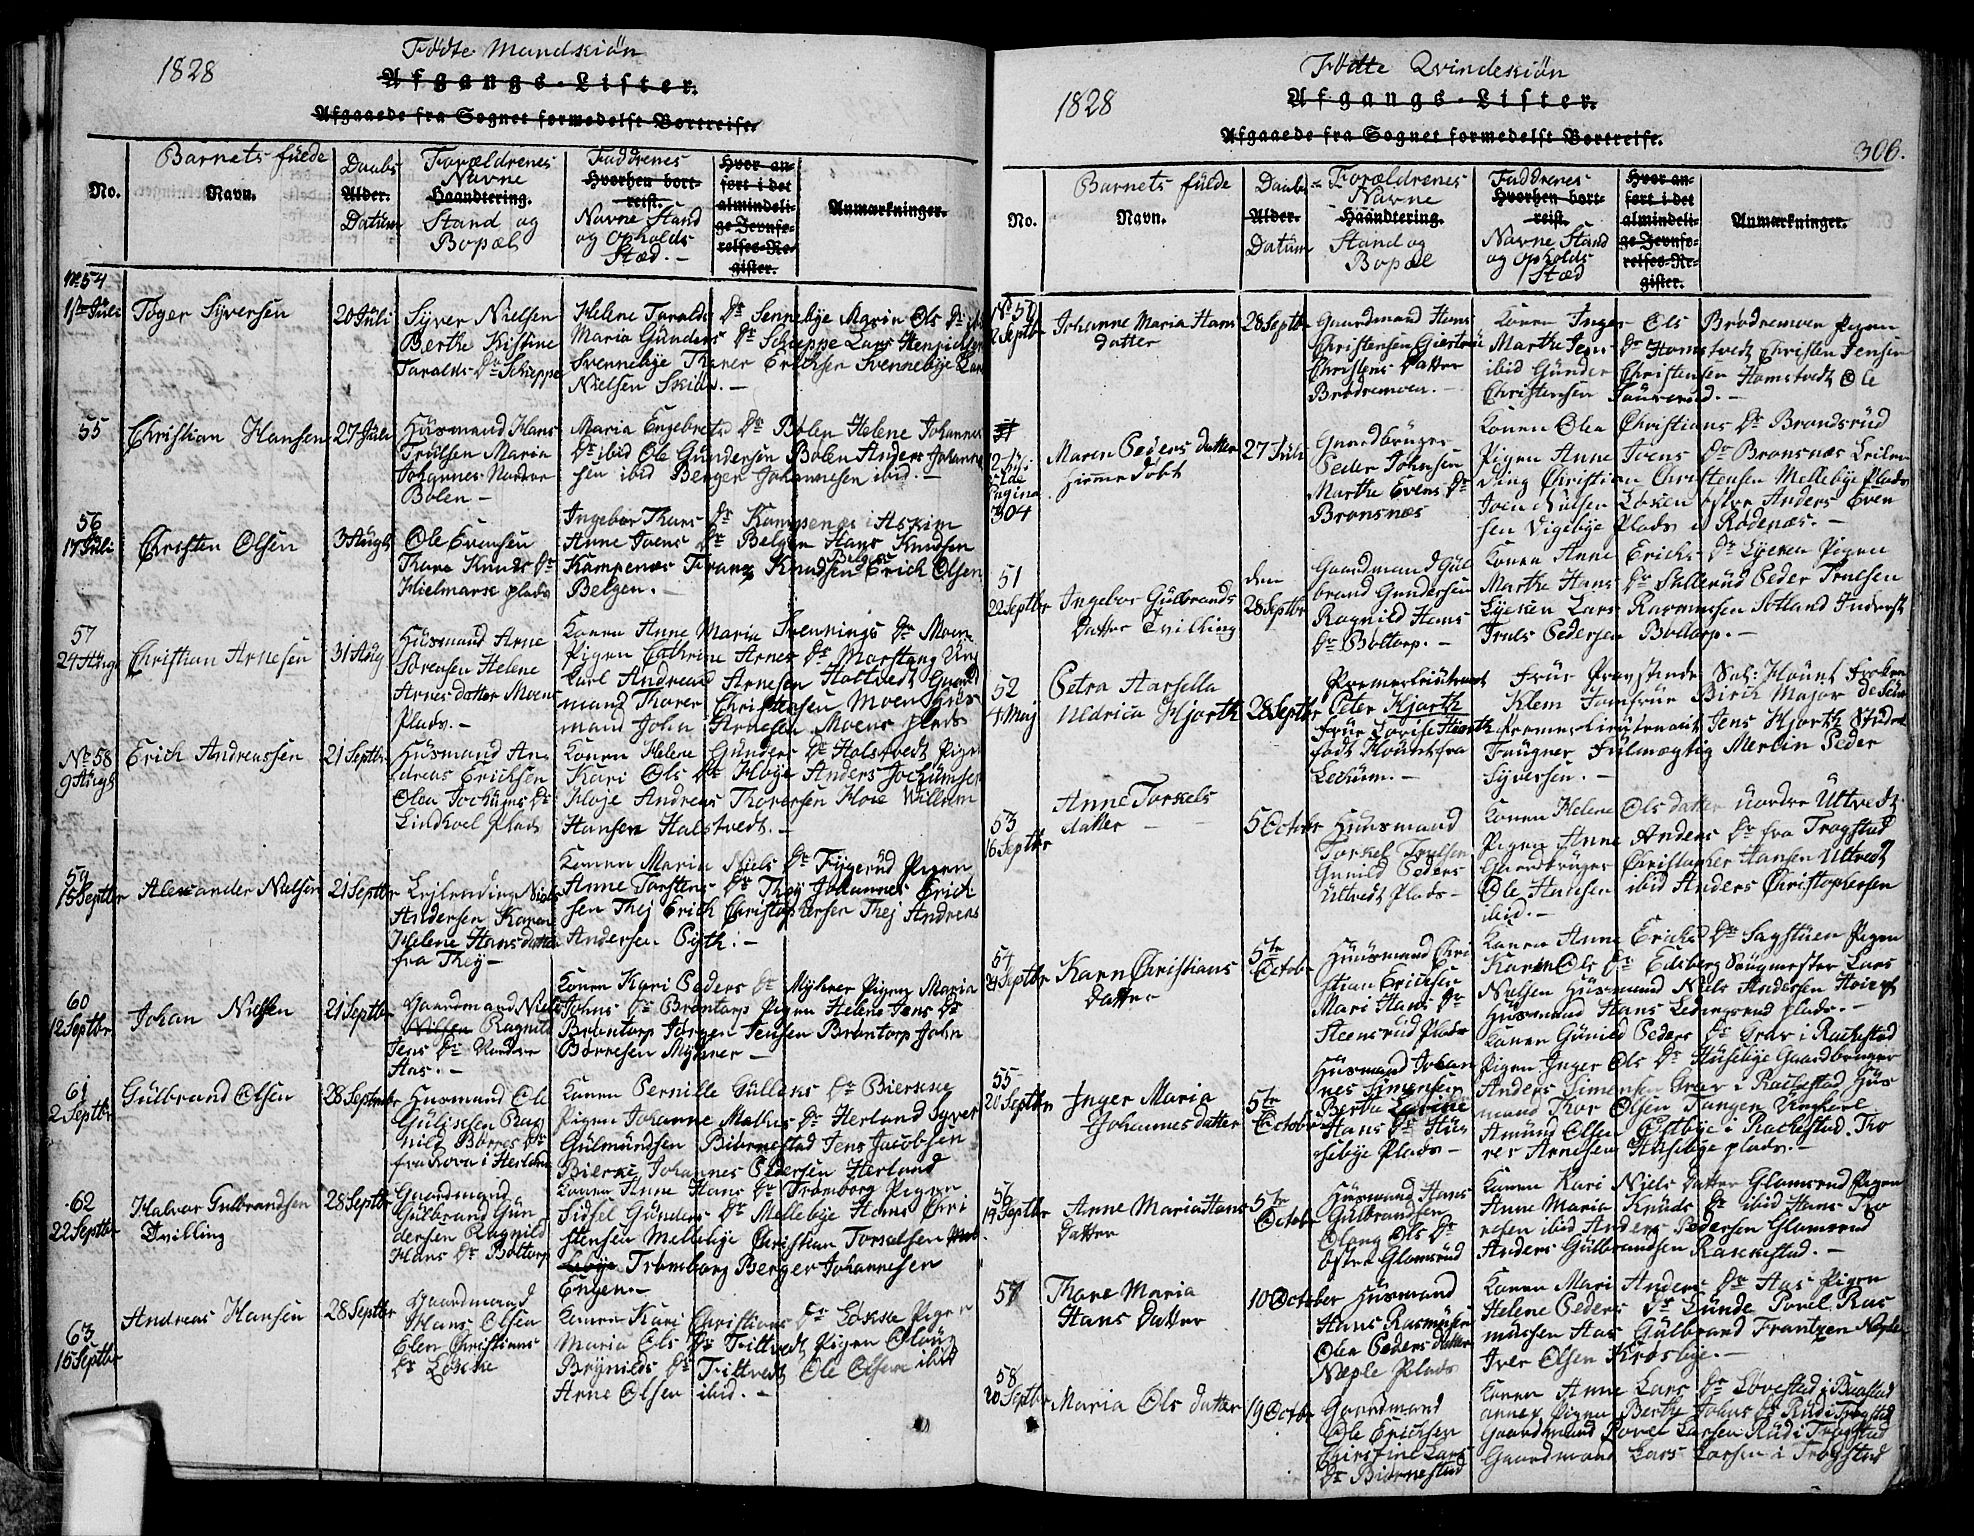 1828
Fødte Mandskiøn
Afgangs-Lister.
Afgaaede fra Sognet formedelst Bortreise.
No.
Barnets fulde
Navn.
Daabs
Alder.
Datum
Forældrenes
Navne
Haandtering.
Stand og
Bopæl
Faddrenes
Hvorhen bort-
reist.
Navne Stand
og Opholds
Stæd.-
Hvor an-
ført i det
almindeli-
ge Jevnfø-
relses-Re-
gister.
Anmærkninger.
No 54
1ste Juli
Toger Syversen
20 Juli
Syver Nielsen
Berthe Kistine
Taralds Dr Schieppe
Helene Taralds Dr Sennebye Maria Ols Dr
Maria Gunders Dr Schieppe Lars Henrichsen
Svennebye Thorer Ericksen Svennebye Lars
Nielsen Skibr.-
55
Christian Hansen
27 Juli
Husmand Hans
Trulsen Maria
Johannes Nordre
Bolen-
Maria Engebrets Dr Bolen Helene Johannes
Dr ibid Ole Gundersen Bolen Anders Johanne
sen ibid Berger Johannesen ibid.-
56
17 Juli
Christen Olsen
3 Augst
Ole Evensen
Thore Knuds Dr
Hielmarse plads
Ingebor Thors Dr Kampenæs i Askim
Anne Ivens Dr Belgen Hans Knudsen
Kampenæs Franz Knudsen Erich Olsen
Belgen.-
57
24 Augs
Christian Arnesen
31 Aug
Husmand Arne
Sørensen Helene
Arnes datter Moens
Plads.-
Konen Anne Maria Svennings Dr Moen
Pigen Cathrine Arnes Dr Marstang Ung
Carl Andreas Arnesen Holtvedt Gaard
mand Thorer Christensen Moen Hus
mand John Arnesen Moens plads
No 58
9 Augst
Erich Andreassen
21 Septbr
Husmand An-
dreas Ericksen
Olea Jochums Dr
Lindhoel Plads
Konen Helene Gunders Dr Halstvedt Pigen
Kari Ols Dr Hoye Anders Jochumsen
Hoje Andreas Thoresen Hoie Willum
Hansen Halstvedt.-
59
15 Septbr
Alexander Nielsen
21 Septbr
Leylending Niels
Andersen Karen
Helene Hans datter
fra Thej-
Konen Maria Niels Dr Fyggerud Pigen
Anne Torstens Dr Thej Johannes Erich
sen Thej Erich Christophersen Thej Andreas
Andersen Egth.-
60
12 Septbr
Johan Nielsen
21 Septbr
Gaardmand Niels
Nilsen Ragnild
Jens Dr Nordre
Aas.-
Konen Kari Peders Dr Myhrer Pigen Maria
Johns Dr Brøntorp Pigen Helene Jens Dr
Brøntorp Jørgen Jensen Brøntorp John
Børresen Myhrer-
61
2 Septbr
Gulbrand Olsen
28 Septembr
Husmand Ole
Gulissen Rag
nild Børres Dr
fra Rova i Herland
Konen Pernille Gullens Dr Bierkne
Pigen Johanne Mathis Dr Herland Syver
Gulmundsen Biørnestad Jens Jacobsen
Bierke Johannes Pedersen Herland
62
22 Septbr
Halvor Gulbrandsen
Tvilling
28 Septbr
Gaardmand
Gulbrand Gun
dersen Ragnild
Hans Dr Boltorp
Konen Anne Hans Dr Trømborg Pigen
Sidsel Gunders Dr Mellebye Hans Chri
stensen Mellebye Christian Torkelsen Mel
lebye Trømborg Berger Johannesen
Engen.-
63
15 Septbr
Andreas Hansen
28 Septbr
Gaardmand
Hans Olsen
Elen Christians
Dr Løkke
Konen Kari Christians Dr Løkka Pigen
Maria Ols Dr Tiltvedt Pigen Oloug
Brynilds Dr Tiltvedt Ole Olsen ibid
Arne Olsen ibid.-
1828
Fødte Qvindeskiøn
Afgangs-Lister.
Afgaaede fra Sognet formedelst Bortreise.
306.
No.
Barnets fulde
Navn.
Daabs-
Alder.
Datum
Forældrenes
Navne
Haandtering.
Stand og
Bopæl
Faddrenes
Hvorhen bort-
reist.
Navne Stand
og Opholds
Stæd
Hvor an-
ført i det
almindeli-
ge Jevnfø-
relses-Re-
gister.
Anmærkninger.
No 50
2 Septbr
Johanne Maria Hans
datter
28 Septbr
Gaardmand Hans
Christensen Giertru
Christens Datter
Brødremoen.-
Konen Inger Ols Brødremoen Pigen
Marthe Jens Dr Homstvedt Christen Jensen
ibid Gunder Christensen Homstvedt Ole
Christensen Taururud.-
12 Juli
Pagina
304
Maren Peders datter
hjemmedøbt
27 Juli
Gaardbruger
Peder Johnsen
Marthe Evens Dr
Bronsnæs
Konen Olea Christians Dr Brandsrud
Pigen Anne Ivens Dr Bronsnæs Leilen
ding Christian Christensen Mellebye Plads
Iven Nielsen Løken østre Anders Even
sen Vigebye Plads i Rødenæs.-
51
22 Septbr
Ingebor Gulbrands
Datter Tvilling
den
28 Septbr
Gaardmand Gul
brand Gundersen
Ragnild Hans
Dr Boltorp.-
Konen Anne Erichs Dr Lyeren Pigen
Marthe Hans Dr Sallerud Peder Trulsen
Lycken Lars Rasmussen Sotland Inderst
Truls Pedersen Boltorp.-
52
4 Maj
Petra Harsella
Uldrica Hjorth
28 Septbr
Premierleutnant
Peter Hjorth
Frue Lovise Hiorth
født Hount fra
Lecum.-
Frue Provstinde Sal: Hount Frøken
Klem Jomfrue Birch Major de Seue
Premierleutenant Jens Hjorth Student
Faugner Fulmægtig Merlin Peder
Syversen.-
53
16 Septbr
Anne Torkels
datter-
5 Octobr
Huusmand
Torkel Trulsen
Gunild Peders
Ultvedt Plads-
Konen Helene Ols datter nordre Ultvedt
Pigen Anne Anders Dr fra Trøgstad
Gaardbruger Christopher Hansen Ultvedt
Ole Hansen ibid Anders Christophersen
ibid.-
54
24 Septbr
Karn Christians
Datter
5te
Octobr
Huusmand Chri
stian Ericksen
Mari Hans Dr
Steensrud Plads
Konen Anne Ericks Dr Sagstuen Pigen
Karin Ols Dr Edsberg Saugmester Lars
Nielsen Husmand Niels Andersen
Husmand Hans Ledingsrud plads.-
Konen Gunild Peders Dr Grav i Rackestad
55
20 Septbr
Inger Maria
Johannes datter
5te
Octobr
Husmand Johan
nes Simensen
Bertha Lovine
Hans Dr Hus
sebye Plads-
Pigen Inger Ols Dr Husebye Gaardbruger
Anders Simensen Grav i Rackestad Hus
mand Thor Olsen Tangen Ungkarl
Amund Olsen Østbye i Rackestad. Tho
rer Arnesen Husebye plads.-
56
14 Septbr
Anne Maria Hans
Datter
5te
Octobr
Husmand Hans
Gulbrandsen
Oloug Ols Dr
østre Glomsrud
Konen Kari Niels Datter Glomsrud Pigen
Anne Maria Knuds Dr ibid Hans Tho
resen ibid Anders Pedersen Glomsrud
Anders Gulbrandsen Rackestad.-
57
Thore Maria
Hans Datter
10 October
Husmand
Hans Rasmusen
Olea Peders datter
Næple Plads
Konen Mari Anders Dr Aas Pigen
Helene Peders Dr Lunde Povel Ras
mussen Aas Gulbrand Frantzen Næple
Iver Olsen Krosbye.-
58
20 Septbr
Maria Ols datter
19 Octbr
Gaardmand
Ole Ericksen
Christine Lars
Dr Biørnestad
Konen Anne Lars Dr Lovestad i Baastad
annex Pigen Berthe Johns Dr Rud i Trøgstad
Gaardmand Povel Larsen Rud i Trøgstad
Gaardmand Lars Larsen i Trøgstad